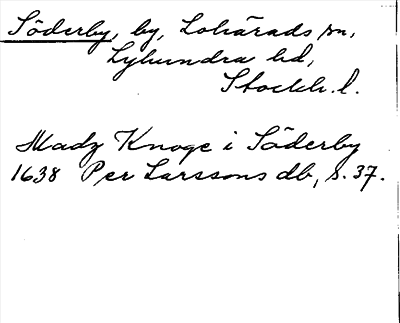 Söderby, by, Lohärads sn,
Lyhundra hd,
Stockh. l.
Madz Knoge i Söderby
1638 Per Larssons db, s. 37.